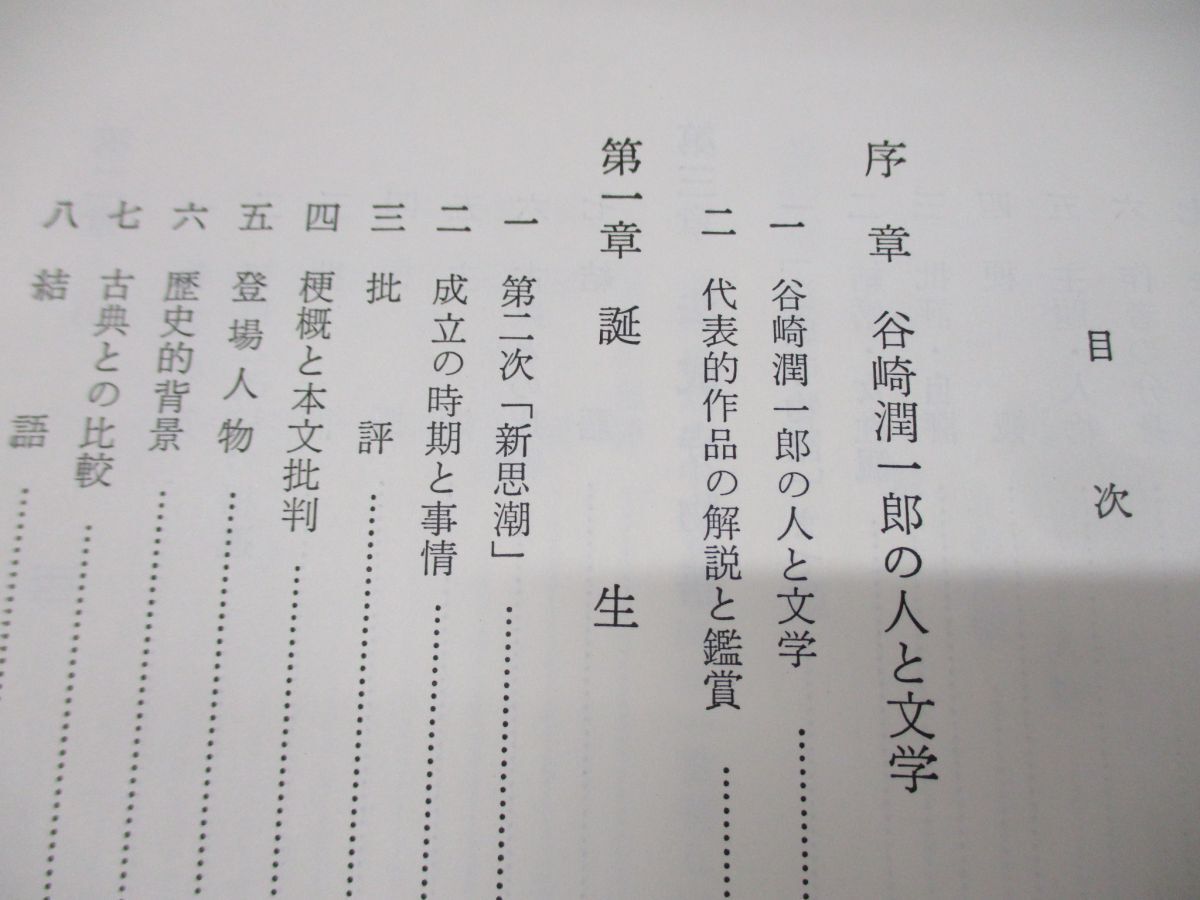 目次
序章 谷崎潤一郎の人と文学
一 谷崎潤一郎の人と文学
二 代表的作品の解説と鑑賞
第一章 誕生
一 第二次「新思潮」
二 成立の時期と事情
三 批評
四 梗概と本文批判
五 登場人物
六 歴史的背景
七 古典との比較
八 結語